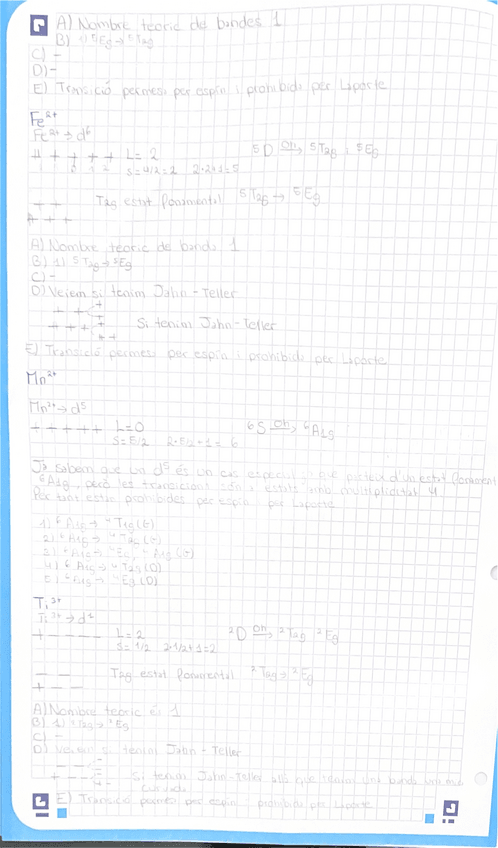 A) Nombre teoric de bandes 1
B) 1) ⁵Eg → ⁵T2g
C) -
D) -
E) Transició permesa per espín i prohibida per Laporte
Fe²⁺
Fe²⁺ → d⁶
L = 2
S = 4/2 = 2 2·2+1 = 5
⁵D Oh→ ⁵T2g i ⁵Eg
T2g estat fonamental ⁵T2g → ⁵Eg
A) Nombre teoric de bandes 1
B) 1) ⁵T2g → ⁵Eg
C) -
D) Veiem si tenim Jahn-Teller
Si tenim Jahn-Teller
E) Transició permesa per espín i prohibida per Laporte
Mn²⁺
Mn²⁺ → d⁵
+ + + + + L = 0
S = 5/2 2·5/2+1 = 6
⁶S Oh→ ⁶A1g
Ja sabem que un d⁵ és un cas especial ja que parteix d'un estat fonamental
⁶A1g, però les transicions són a estats amb multiplicitat 4
Per tant estan prohibides per espín i per Laporte
1) ⁶A1g → ⁴T1g (G)
2) ⁶A1g → ⁴T2g (G)
3) ⁶A1g → ⁴Eg, ⁴A1g (G)
4) ⁶A1g → ⁴T2g (D)
5) ⁶A1g → ⁴Eg (D)
Ti³⁺
Ti³⁺ → d¹
+ - - - - L = 2
S = 1/2 2·1/2+1 = 2
²D Oh→ ²T2g ²Eg
T2g estat fonamental ²T2g → ²Eg
A) Nombre teoric és 1
B) 1) ²T2g → ²Eg
C) -
D) Veiem si tenim Jahn-Teller
Si tenim Jahn-Teller així que tenim una banda una mica
E) Transició permesa per espín i prohibida per Laporte